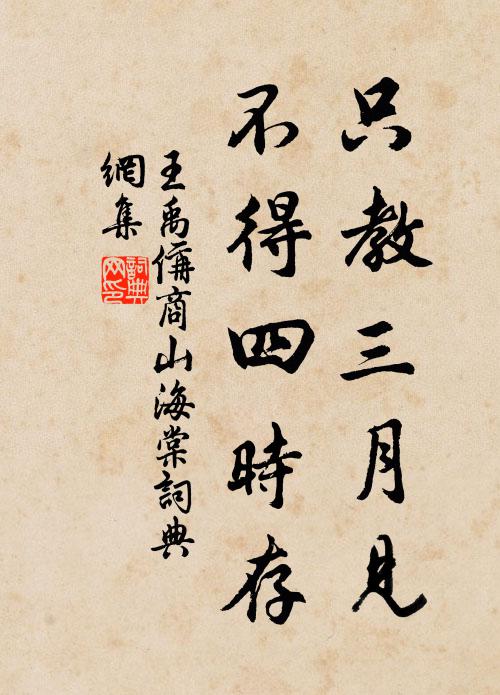 只教三月見
不得四時存
王禹偁商山海棠詞典
網集
詞典
网印